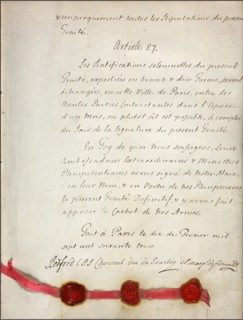 réciproquement toutes les Stipulations du présent
Traité.
Article 27.
Les Ratifications solemnelles du présent
Traité, expediées en bonne & duë Forme, seront
échangées, en cette Ville de Paris, entre les
Hautes Parties Contractantes dans l'Espace
d'un Mois, ou plutôt s'il est possible, à compter
du Jour de la Signature du présent Traité.
En Foy de quoi Nous soussignés, Leurs
Ambassadeurs Extraordinaires & Ministres
Plenipotentiaires avons signé de Notre Main,
en leur Nom, & en Vertu de nos Pleinpouvoirs,
le présent Traité Définitif, & y avons fait
apposer le Cachet de nos Armes.
Fait à Paris le dix de Fevrier mil
sept cent soixante trois.
Bedford C.P.S. Choiseul duc de Praslin el Marqs de Grimaldi